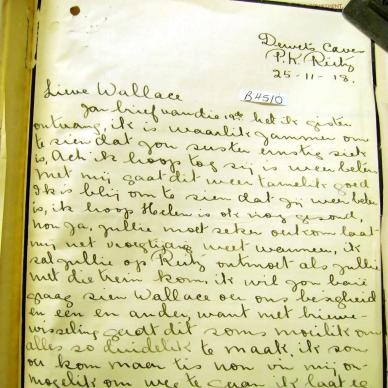 Dewets Cave
P.K. Reitz
25-11-18.
Lieve Wallace
B4510
Jou brief van die 19de het ik gister
ontvang, ik is waarlik jammer om
te sien dat jou suster ernstig siek
is, Ach ik hoop tog sij is weer beter
Met mij gaat dit weer tamelik goed
Ik is blij om te sien dat jij weer beter
is, ik hoop Helen is ok nog gesond,
nou ja, jullie moet seker uitkom laat
mij net vroegtijdig weet wanneer, ik
sal jullie op Reitz ontmoet als jullie
met die trein kom, ik wil jou baie
graag sien Wallace oor ons besigheid
en een en ander, want met briewe
wisseling gaat dit soms moeilik om
alles so duidelik te maak, ik sou
ou kom maar tis nou vir mij on-
mogelik om weg te gaan